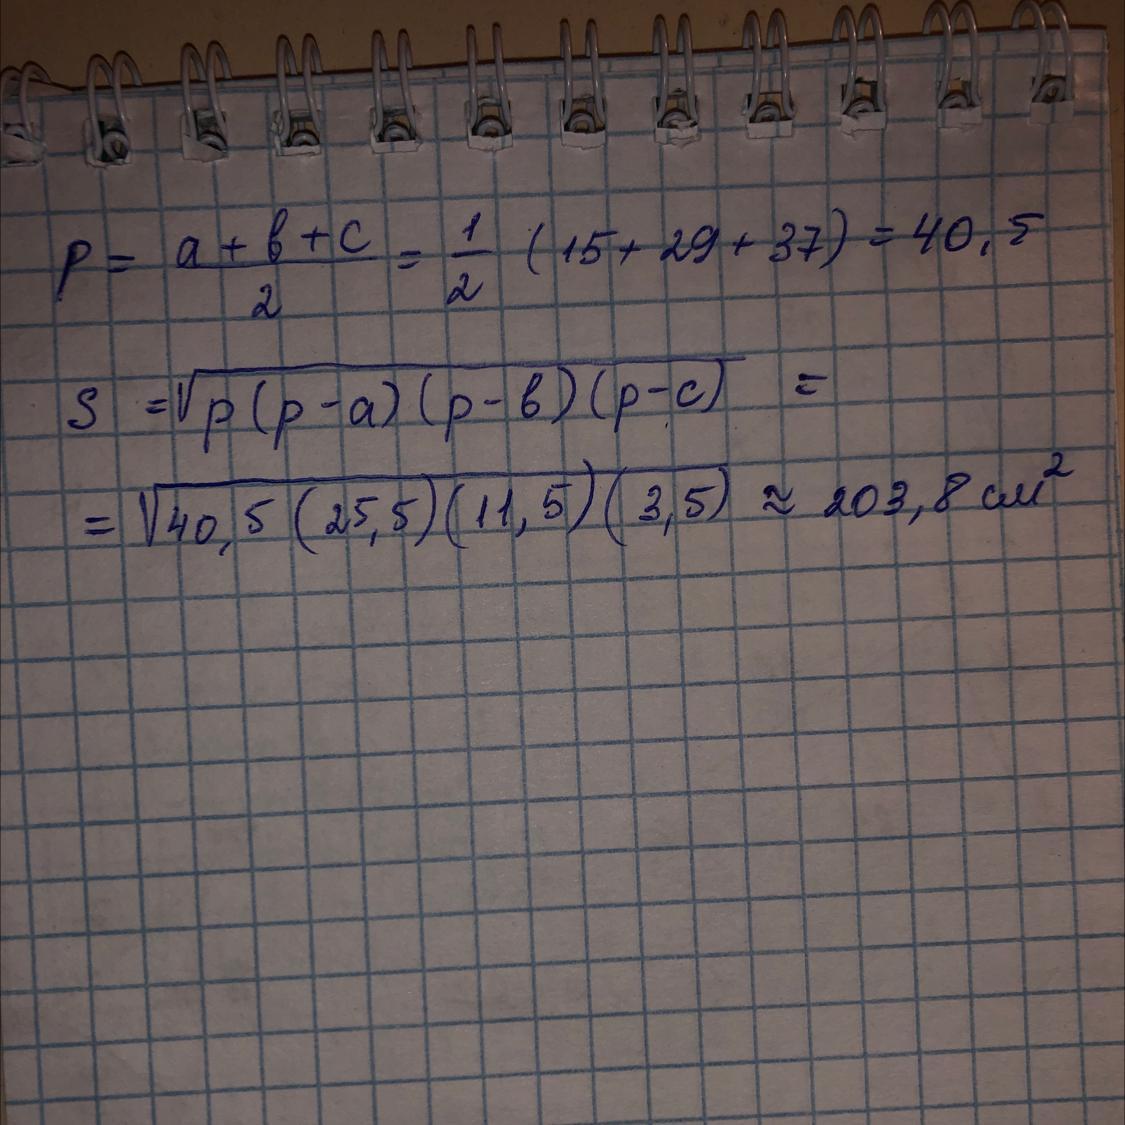 p = a + b + c / 2 = 1/2 (15 + 29 + 37) = 40,5
S = √p(p-a)(p-b)(p-c) =
= √40,5 (25,5)(11,5)(3,5) ≈ 203,8 см²